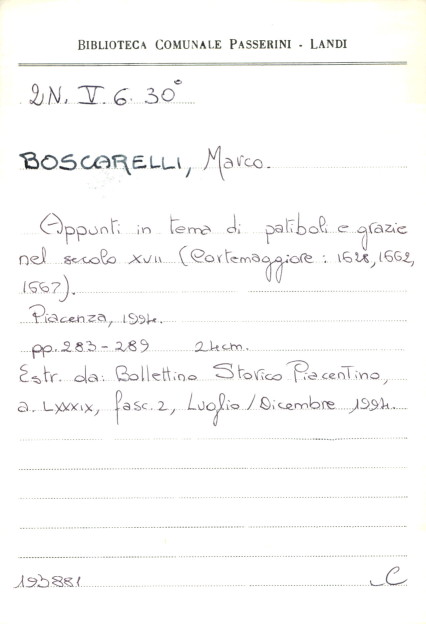 BIBLIOTECA COMUNALE PASSERINI - LANDI
2N. V. 6. 30°
BOSCARELLI, Marco.
Appunti in tema di patiboli e grazie
nel secolo XVII (Cortemaggiore: 1628, 1662,
1667).
Piacenza, 1994.
pp. 283-289 24cm.
Estr. da: Bollettino Storico Piacentino,
a. LXXXIX, fasc. 2, Luglio/Dicembre 1994.
193881 C